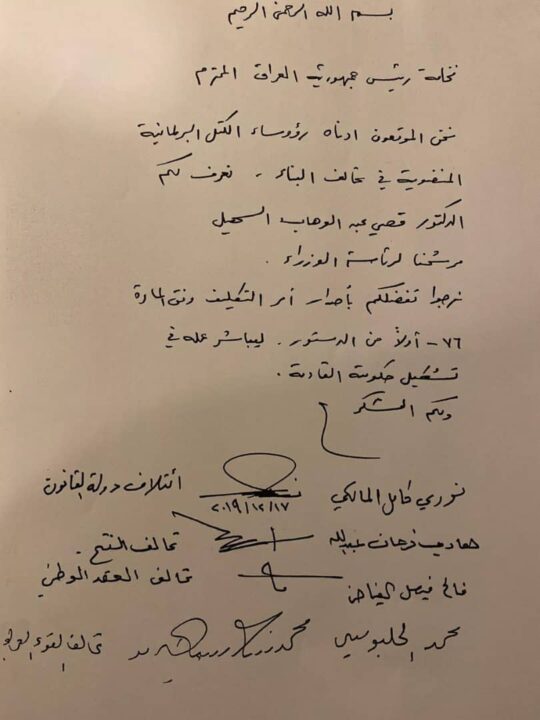 بسم الله الرحمن الرحيم
فخامة رئيس جمهورية العراق المحترم
نحن الموقعون ادناه رؤوساء الكتل البرلمانية
المنضوية في تحالف البناء ، نعرف لكم
الدكتور قصي عبد الوهاب السهيل
مرشحنا لرئاسة الوزراء .
نرجوا تفضلكم بأصدار أمر التكليف وفق المادة
٧٦ - أولاً من الدستور . ليباشر عمله في
تشكيل حكومته القادمة .
ولكم الشكر
نوري كامل المالكي ائتلاف دولة القانون
٢٠١٩/١٢/١٧
هادي فرحان عبدالله تحالف الفتح .
فالح فيصل الفياض تحالف العقد الوطني
محمد الحلبوسي تحالف القوى